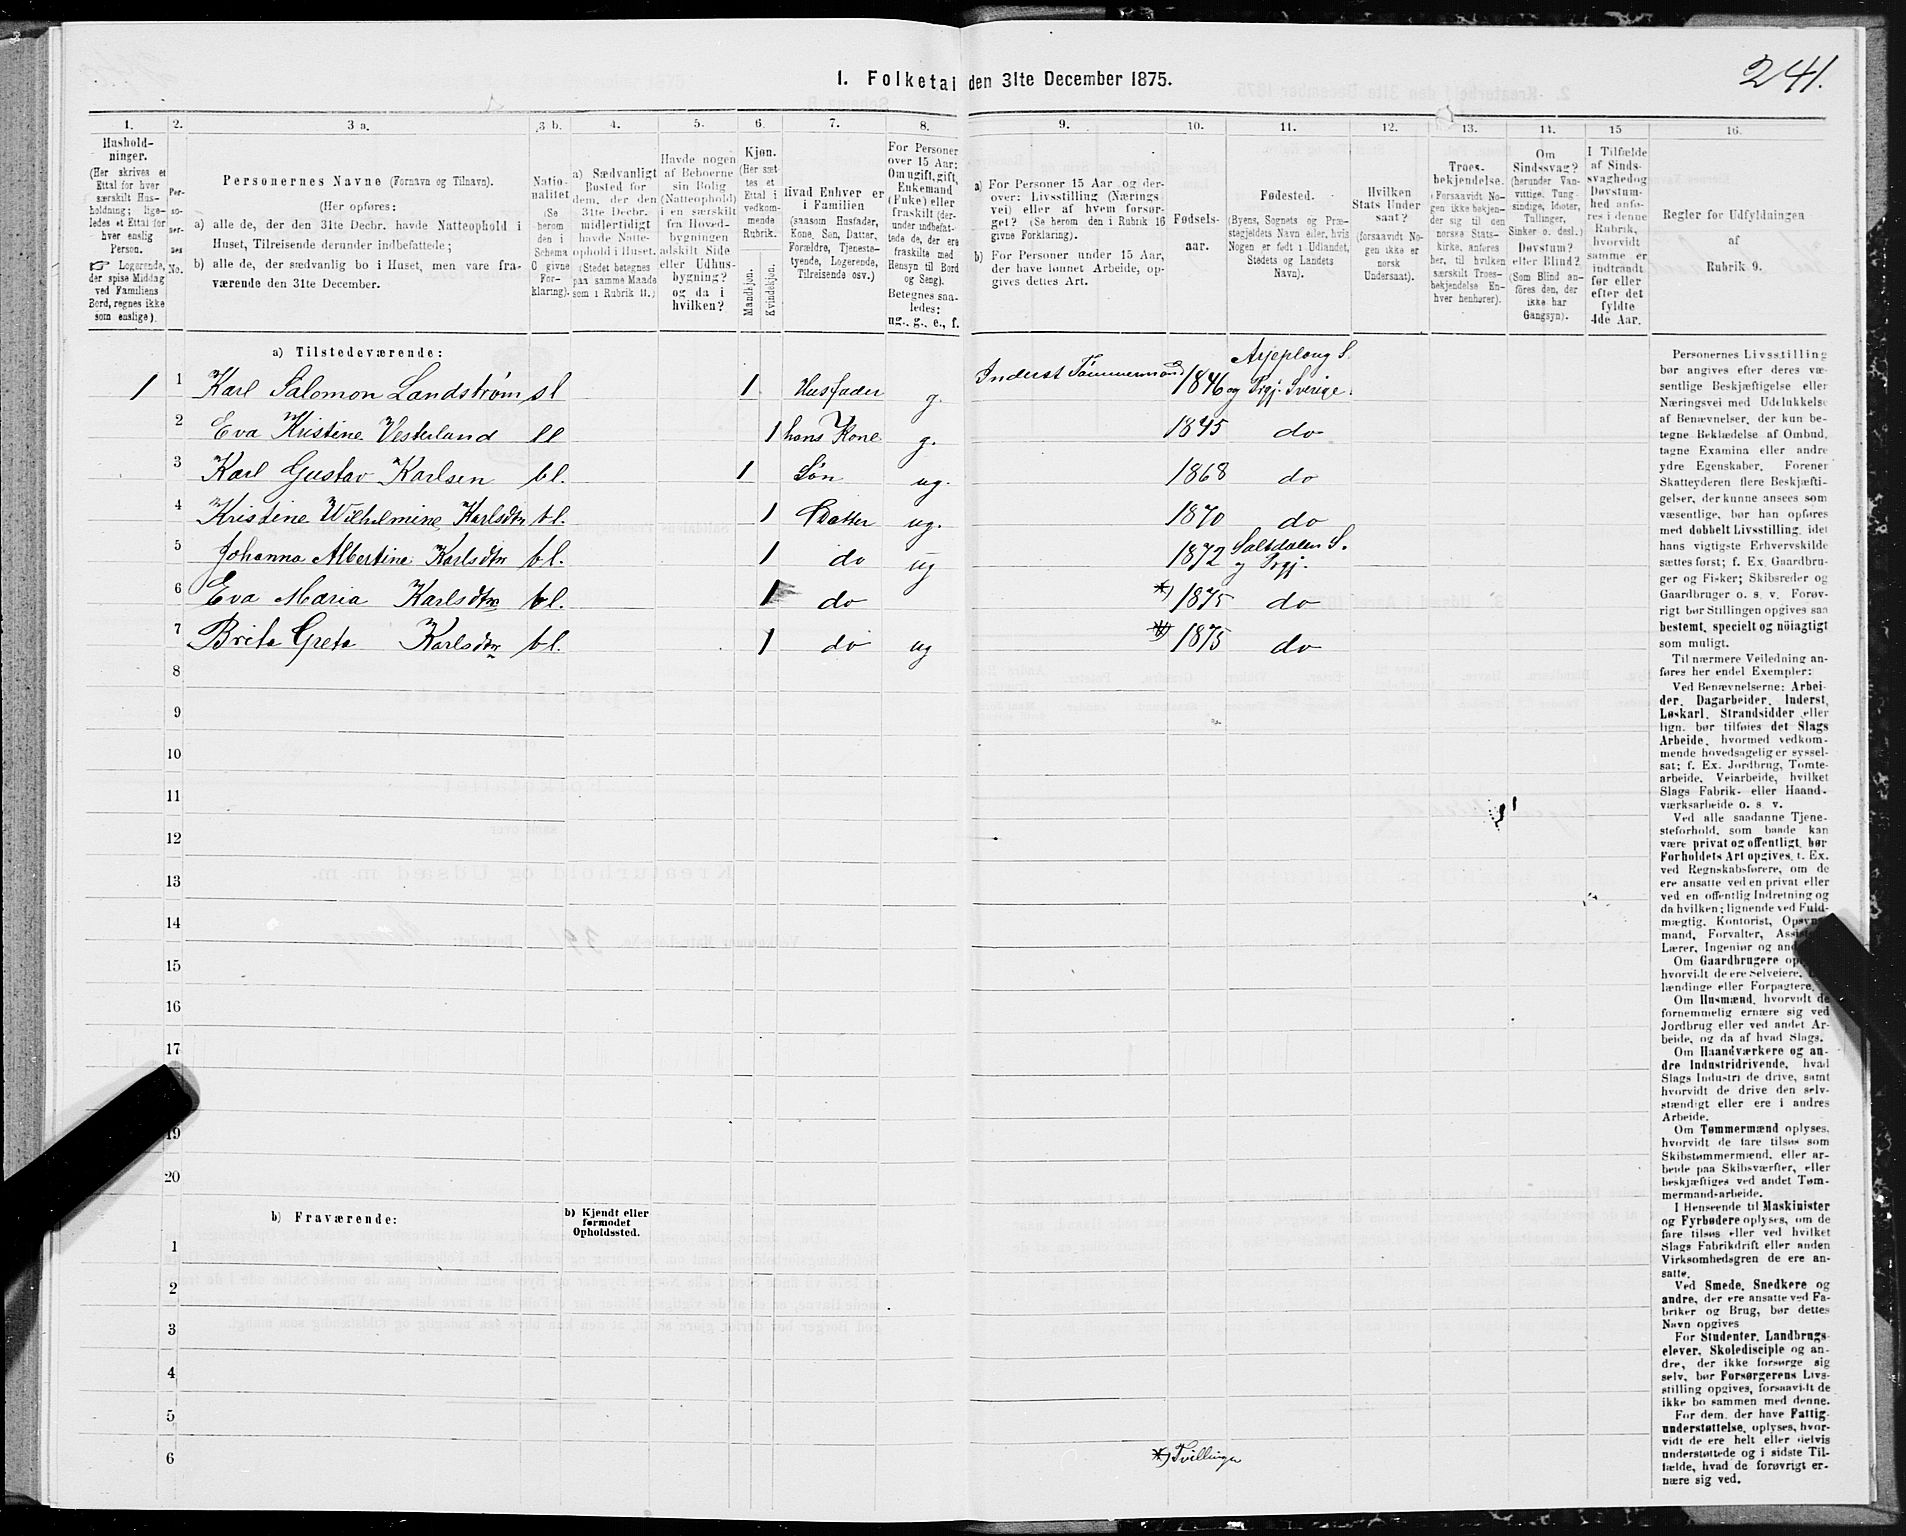 241.
1. Folketal den 31te December 1875.
1. 2. 3 a. 3 b. 4. 5. 6. 7. 8. 9. 10. 11. 12. 13. 14. 15 16.
Hushold-
ninger.
(Her skrives et
Ettal for hver
særskilt Hus-
holdning; lige-
ledes et Ettal for
hver enslig
Person.
☞ Logerende,
der spise Middag
ved Familiens
Bord, regnes ikke
som enslige).
Per-
so-
ner-
nes
No.
Personernes Navne (Fornavn og Tilnavn).
(Her opføres:
a) alle de, der den 31te Decbr. havde Natteophold i
Huset, Tilreisende derunder indbefattede;
b) alle de, der sædvanlig bo i Huset, men vare fra-
værende den 31te December.
Natio-
nalitet
(Se
herom
den i
Schema
C givne
For-
klaring).
a) Sædvanligt
Bosted for
dem, der den
31te Decbr.
midlertidigt
havde Natte-
ophold i Huset.
(Stedet betegnes
paa samme Maade
som i Rubrik 11.)
Havde nogen
af Beboerne
sin Bolig
(Natteophold)
i en særskilt
fra Hoved-
bygningen
adskilt Side-
eller Udhus-
bygning?
og da i
hvilken?
Kjøn.
(Her sæt
tes et
Ettal i
vedkom-
mende
Rubrik.
Mandkjøn.
Kvindekjøn.
Hvad Enhver er
i Familien
(saasom Husfader,
Kone, Søn, Datter,
Forældre, Tjeneste-
tyende, Logerende,
Tilreisende osv.)
For Personer
over 15 Aar:
Om ugift, gift,
Enkemand
(Enke) eller
fraskilt (der-
under indbefat-
tede de, der ere
fraskilte med
Hensyn til Bord
og Seng).
Betegnes saa-
ledes:
ug., g., e., f.
a) For Personer 15 Aar og der-
over: Livsstilling (Nærings
vei) eller af hvem forsør-
get? (Se herom den i Rubrik 16
givne Forklaring).
b) For Personer under 15 Aar,
der have lønnet Arbeide, op-
gives dettes Art.
Fødsels-
aar.
Fødested.
(Byens, Sognets og Præ-
stegjeldets Navn eller, hvis
Nogen er født i Udlandet,
Stedets og Landets
Navn).
Hvilken
Stats Under
saat?
(forsaavidt No-
gen ikke er
norsk
Undersaat).
Troes-
bekjendelse.
(Forsaavidt No-
gen ikke bekjen-
der sig til den
norske Stats-
kirke, anføres
her, til hvilken
særskilt Troes-
bekjendelse En-
hver henhører).
Om
Sindssvag?
(herunder Van-
vittige, Idioter,
Tullinger,
Sinker o. desl.)
Døvstum?
eller Blind?
(Som Blind an-
føres den, der
ikke har
Gangsyn).
I Tilfælde
af Sinds-
svaghed og
Døvstum-
hed anfø-
res i denne
Rubrik,
hvorvidt
samme er
indtraadt
før eller
efter det
fyldte
4de Aar.
Regler for Udfyldningen
af
Rubrik 9.
a) Tilstedeværende:
1 1 Karl Salomon Landstrøm sl 1 Husfader g. Inderst Tømmermand 1846 Arjeplong S. og Prgj. Sverige.
2 Eva Kristine Vesterlund ll 1 hans Kone g. 1845 do
3 Karl Gustav Karlsen bl. 1 Søn ug. 1868 do
4 Kristine Wilhelmine Karlsdtr bl. 1 Datter ug. 1870 do
5 Johanna Albertine Karlsdtr bl. 1 do ug 1872 Saltdalen S. og Prgj.
6 Eva Maria Karlsdtr bl. 1 do *) 1875 do
7 Brita Greta Karlsdtr bl. 1 do ug *) 1875 do
8
9
10
11
12
13
14
15
16
17
19
20
b) Fraværende:
b) Kjendt eller
formodet
Opholdssted.
1
2
3
4
5
6
*) Tvillinger
Personernes Livsstilling
bør angives efter deres væ-
sentlige Beskjæftigelse eller
Næringsvei med Udelukkelse
af Benævnelser, der kun be-
tegne Beklædelse af Ombud,
tagne Examina eller andre
ydre Egenskaber. Forener
Skatteyderen flere Beskjæfti-
gelser, der kunne ansees som
væsentlige, bør han opføres
med dobbelt Livsstilling, idet
hans vigtigste Erhvervskilde
sættes først; f. Ex. Gaardbru-
ger og Fisker; Skibsreder og
Gaardbruger o. s. v. Forøv-
rigt bør Stillingen opgives saa
bestemt, specielt og nöiagtigt
som muligt.
Til nærmere Veiledning an-
føres her endel Exempler:
Ved Benævnelserne: Arbei-
der, Dagarbeider, Inderst,
Løskarl, Strandsidder eller
lign. bør tilføies det Slags
Arbeide, hvormed vedkom-
mende hovedsagelig er syssel-
sat; f. Ex. Jordbrug, Tomte-
arbeide, Veiarbeide, hvilket
Slags Fabrik- eller Haand-
værksarbeide o. s. v.
Ved alle saadanne Tjene-
steforhold, som baade kan
være privat og offentligt, bør
Forholdets Art opgives, t. Ex.
ved Regnskabsførere, om de
ere ansatte ved en privat eller
ved en offentlig Indretning og
da hvilken; lignende ved Fuld-
mægtig, Kontorist, Opsyns-
mand, Forvalter,
Lærer, Ingeniør og
Om Gaardbrugere
hvorvidt de ere Selveiere,
lændinge eller Forpagtere.
Om Husmænd, hvorvidt de
fornemmelig ernære sig ved
Jordbrug eller ved andet Ar-
beide, og da af hvad Slags.
Om Haandværkere og an-
dre Industridrivende, hvad
Slags Industri de drive, samt
hvorvidt de drive den selv-
stændigt eller ere i andres
Arbeide.
Om Tømmermænd oplyses,
hvorvidt de fare tilsøs som
Skibstømmermænd, eller ar-
beide paa Skibsværfter, eller
beskjæftiges ved andet Tøm-
mermand-arbeide.
I Henseende til Maskinister
og Fyrbødere oplyses, om de
fare tilsøs eller ved hvilket
Slags Fabrikdrift eller anden
Virksomhedsgren de ere an-
satte.
Ved Smede, Snedkere og
andre, der ere ansatte ved Fa-
briker og Brug, bør dettes
Navn opgives
For Studenter, Landbrugs-
elever, Skoledisciple og an-
dre, der ikke forsørge sig
selv, bør Forsørgerens Livs-
stilling opgives, forsaavidt de
ikke bo sammen med denne.
For dem, der have Fattig-
understøttelse, oplyses, hvor-
vidt de ere helt eller delvis
understøttede og i sidste Til-
fælde, hvad de forøvrigt er-
nære sig ved.